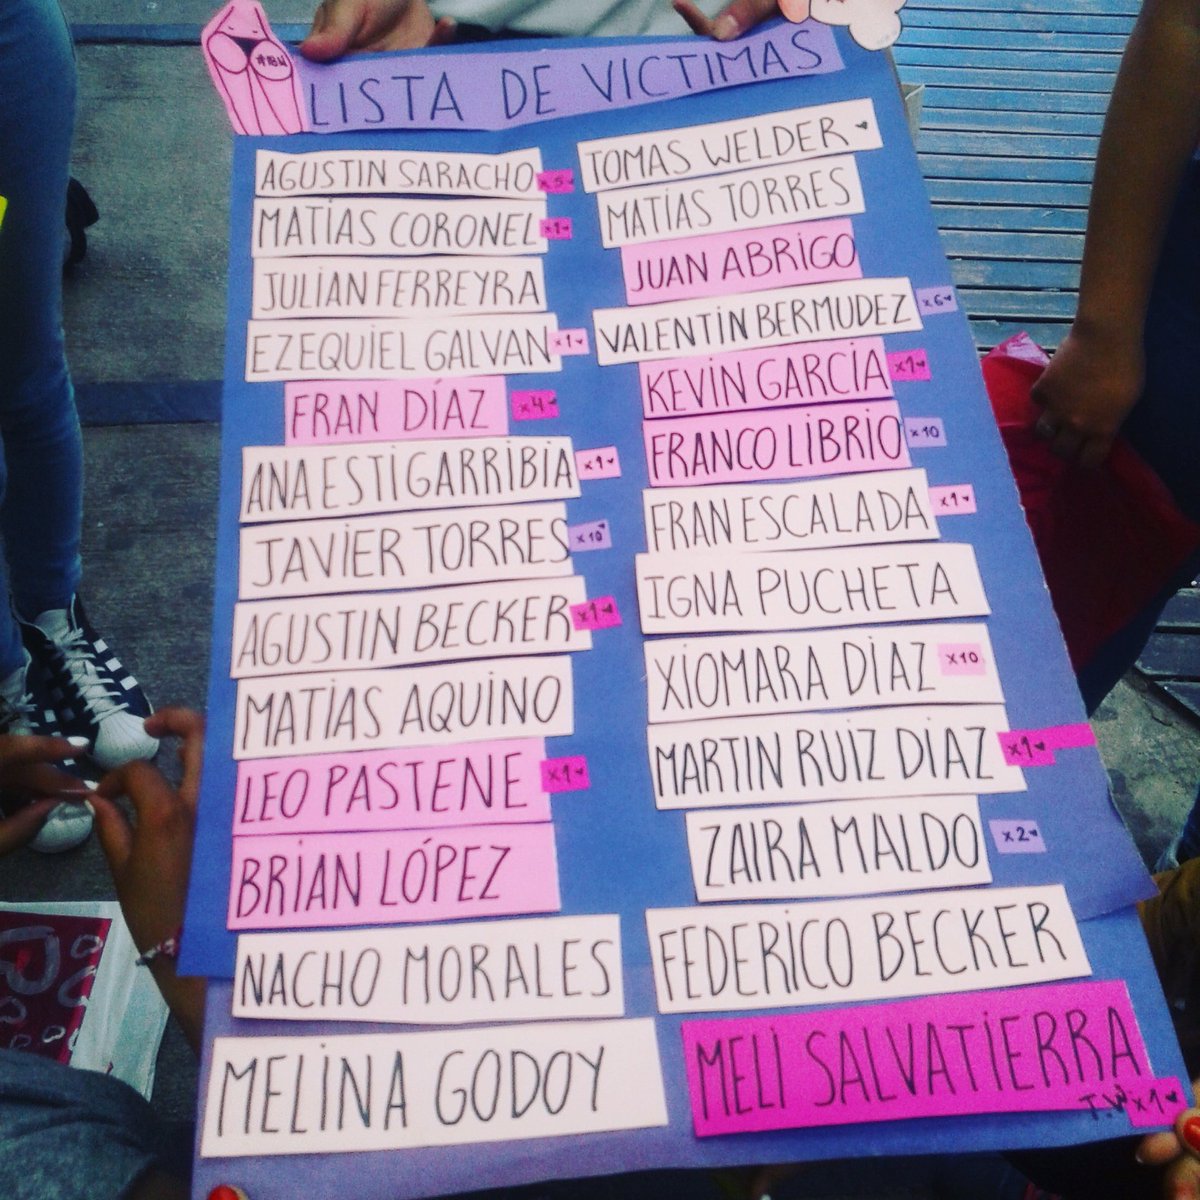 LISTA DE VICTIMAS
AGUSTIN SARACHO x5
MATÍAS CORONEL x1
JULIAN FERREYRA
EZEQUIEL GALVAN x1
FRAN DÍAZ x4
ANA ESTIGARRIBIA x1
JAVIER TORRES x10
AGUSTIN BECKER x1
MATÍAS AQUINO
LEO PASTENE x1
BRIAN LÓPEZ
NACHO MORALES
MELINA GODOY
TOMAS WELDER
MATÍAS TORRES
JUAN ABRIGO
VALENTÍN BERMUDEZ x6
KEVIN GARCÍA x1
FRANCO LIBRIO x10
FRAN ESCALADA x1
IGNA PUCHETA
XIOMARA DIAZ x10
MARTIN RUIZ DIAZ x1
ZAIRA MALDO x2
FEDERICO BECKER
MELI SALVATIERRA
x1